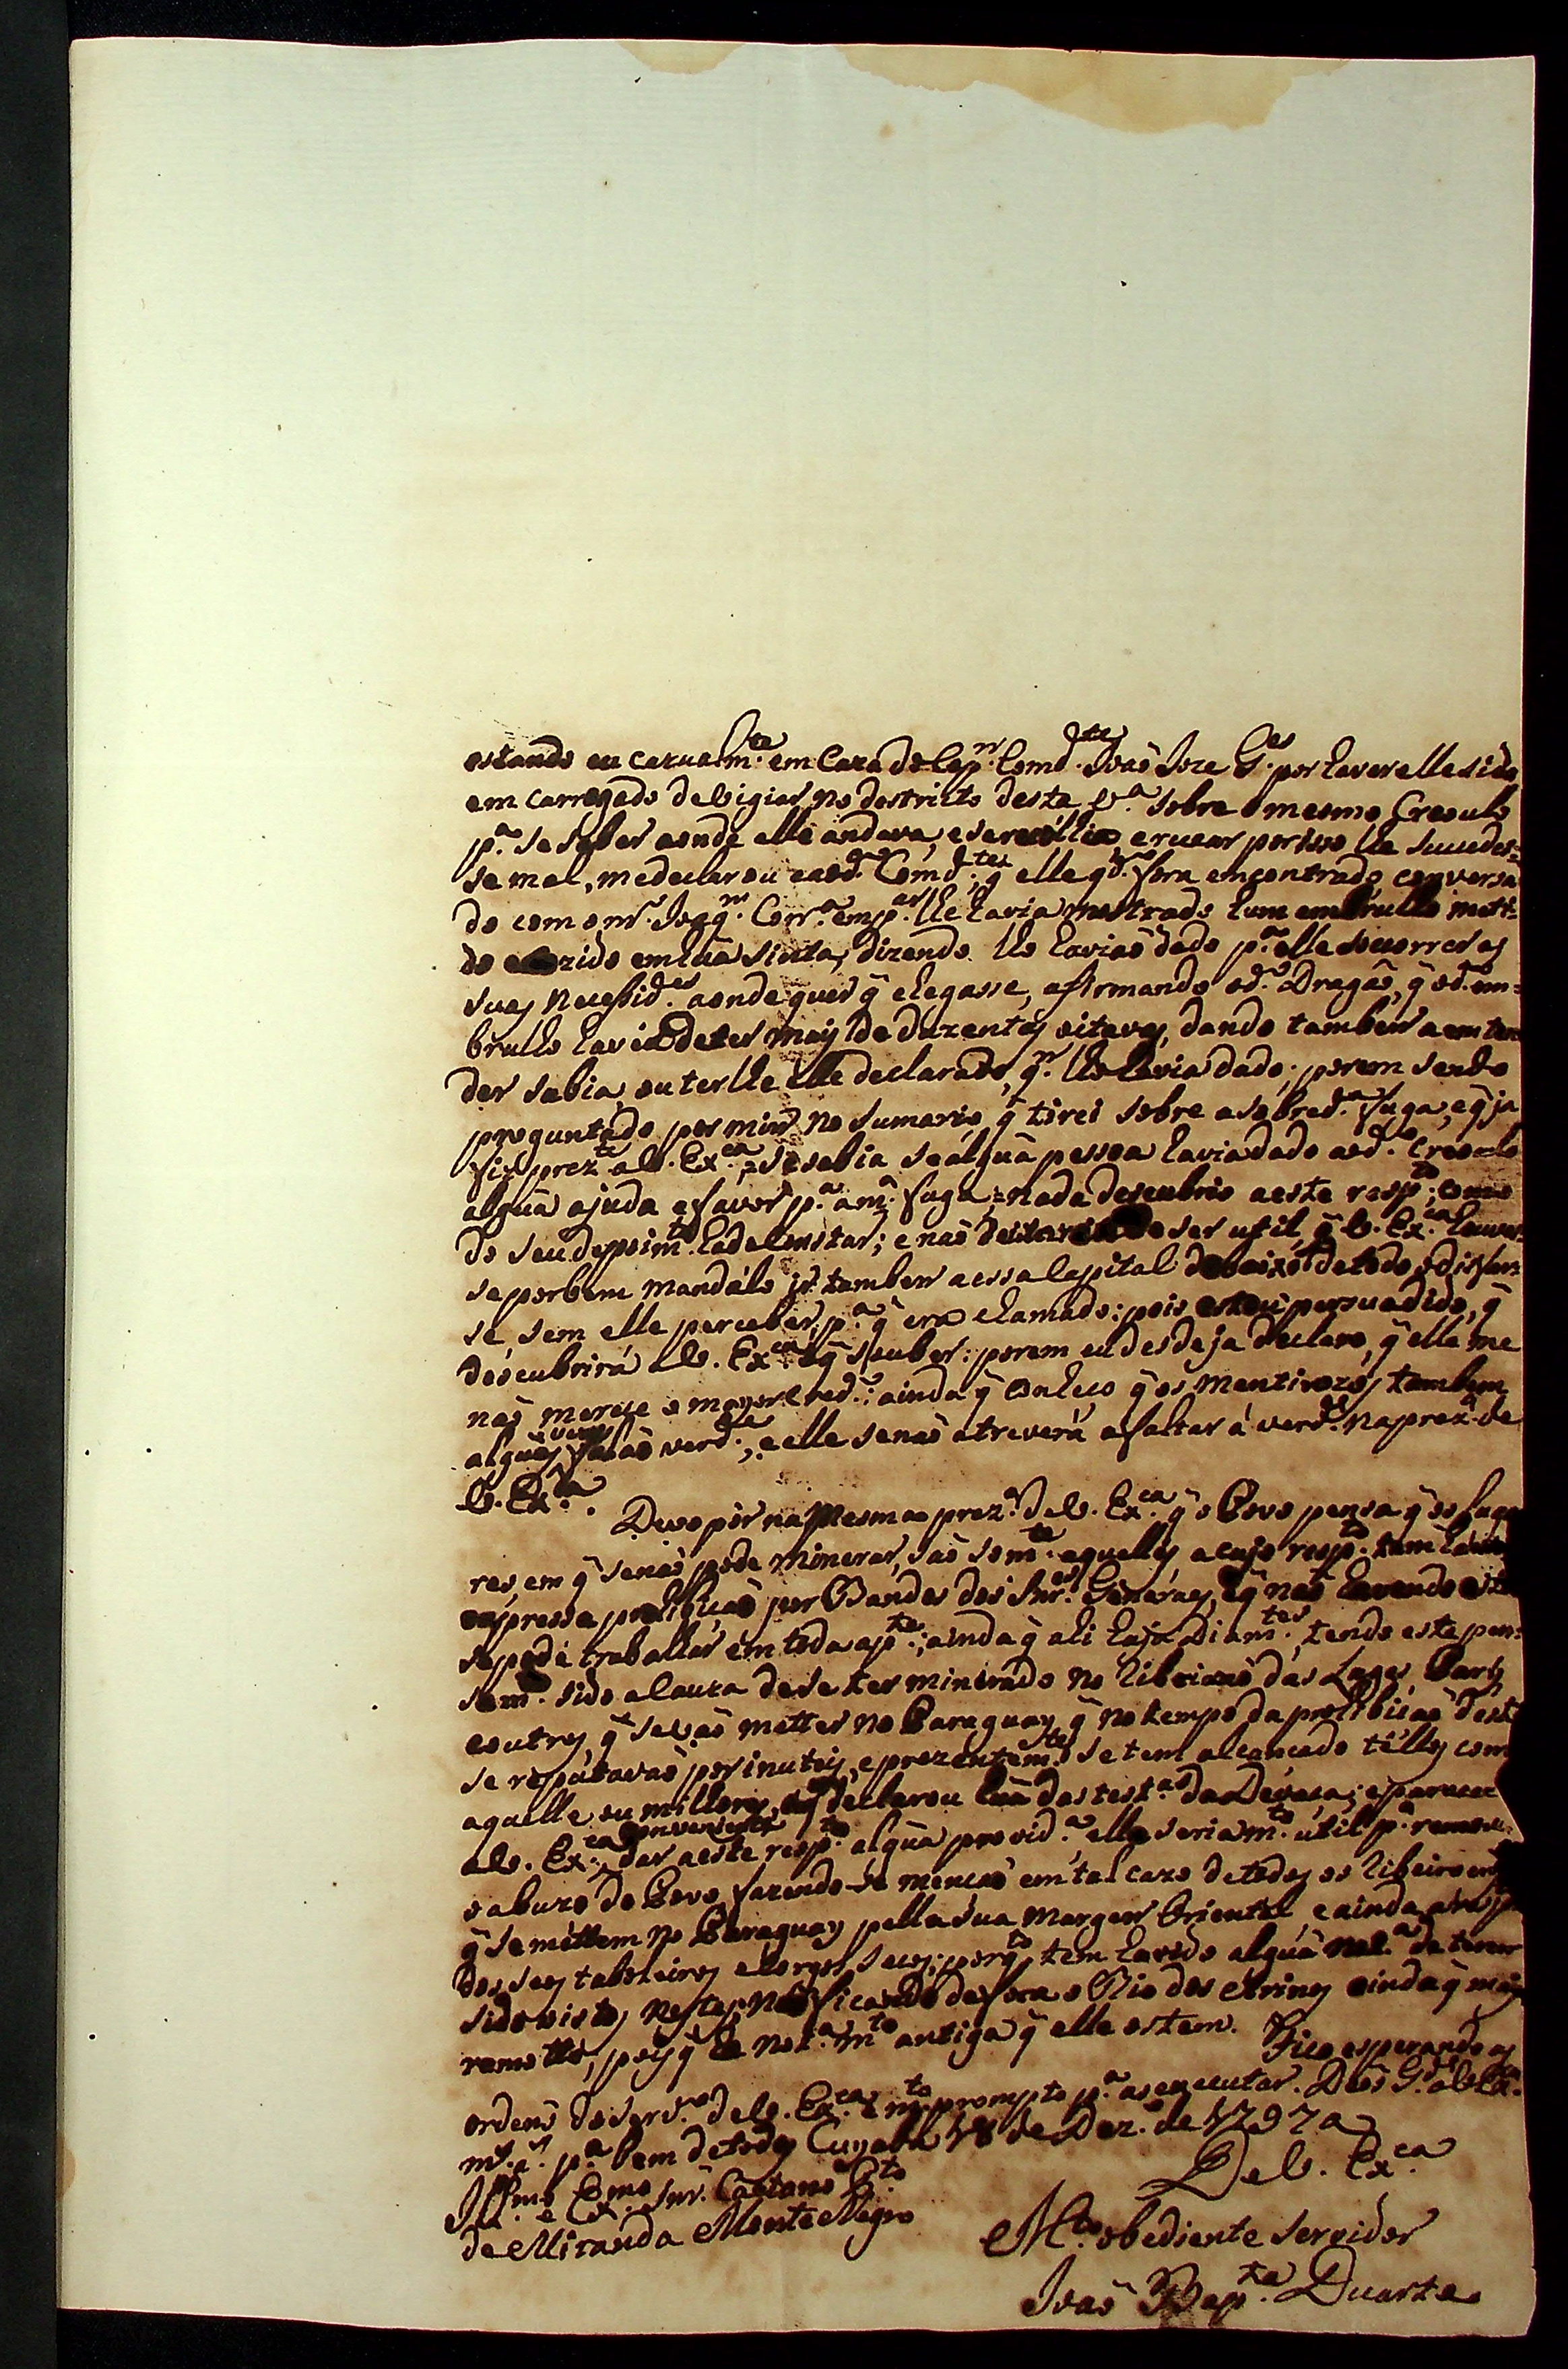 estando eu cazualm.te em Caza do Cap.m Comd.te Joaõ Joze G.es por haver elle sido
em carregado de vigiar no destricto desta V.a sobre o mesmo Creoulo
p.a se saber aonde elle andava, e se recear por isso lhe succedes=
se mal, me declarou e ao d.o Comd.te, q̃ elle q.do fora encontrado, conversa
do com o m.mo Joaq.m Corr.a em p.ar lhe havia mostrado hum embrulho metti=
do cozido em huã sinta, dizendo lho haviaõ dado p.a elle socorrer as
suas necessid.es aonde quer q̃ chegasse, afirmando o d.o Dragaõ, q̃ o d.o em=
brulho havia de ter mais de duzentas oitavas, dando tambem a enten
der sabia, ou ter lhe elle declarado, q.m lho havia dado; porem sendo
preguntado por mim no Sumario, q̃ tirei sobre a sobred.a fuga, e q̃ ja
fiz prez.te a V. Ex.ca, = se sabia se alguã pessoa havia dado ao d.o Creoulo
alguã ajuda e favor p.a a m.ma fuga, = nada descubrio a este resp.to, como
do seu depoim.to ha de constar; e naõ deixaria de ser util, q̃ V. Ex.ca houves
se por bem mandálo ir tambem a essa Capital debaixo de todo o disfar=
se, sem elle perceber, p.a q̃ era chamado: pois estou persuadido, q̃
descubrirá a V. Ex.ca o q̃ souber: porem eu desde ja declaro, q̃ elle me
naõ merece o mayor cred.o: ainda q̃ conheço q̃ os mentirozos tambem
alguãs vezes falaõ verd.e, e elle se naõ atreverá a faltar á verd.e na prez.a de
V. Ex.ca.
Devo pôr na mesma prez.a de V. Ex.ca q̃ o Povo pensa q̃ os luga
res, em q̃ se naõ pode minerar, saõ som.te aquelles a cujo resp.to tem havido
expressa prohibiçaõ por Bandos dos Snr.es Generaes, e q̃ naõ havendo esta
se pode trabalhar em toda a p.te; ainda q̃ ali haja Diam.tes, tendo este pen=
sam.to sido a cauza de se ter minerado no Ribeiraõ das Lages, Pary,
e outros, q̃ se vaõ metter no Paraguay, q̃ no tempo da prohibiçaõ deste
se reputavaõ por inuteis, e prezentem.te se tem alcançado telhos com
aquelle ou milhores, o q̃ declarou huã das test.as da Devaça; e parece
a V. Ex.ca conveniente dar a este resp.to alguã provid.a ella seria m.to util p.a remover
o abuzo do Povo, fazendo-se mençaõ em tal cazo de todos os Ribeiroens
q̃ se mettem no Paraguay pella sua margem Oriental, e ainda a resp.to
dos seus taboleiros e Corgos secos; porq.to tem havido alguã not.a de terem
sido vistos nestes, naõ ficando de fora o Rio dos Arinos ainda q̃ mais
remotto, pois q̃ he not.a m.to antiga q̃ elle os tem. Fico esperando as
ordens do serv.o de V. Ex.ca e m.to prompto p.a as executar. Deos G.de a V. Ex.ca
m.s a.s p.a bem de todos Cuyabá 18 de Dez.o de 1797 a
De V. Ex.ca
Ill.mo e Ex.mo Snr. Caetano P.to
de Miranda Monte Negro
M.to obediente servidor
Joaõ Bap.ta Duarte